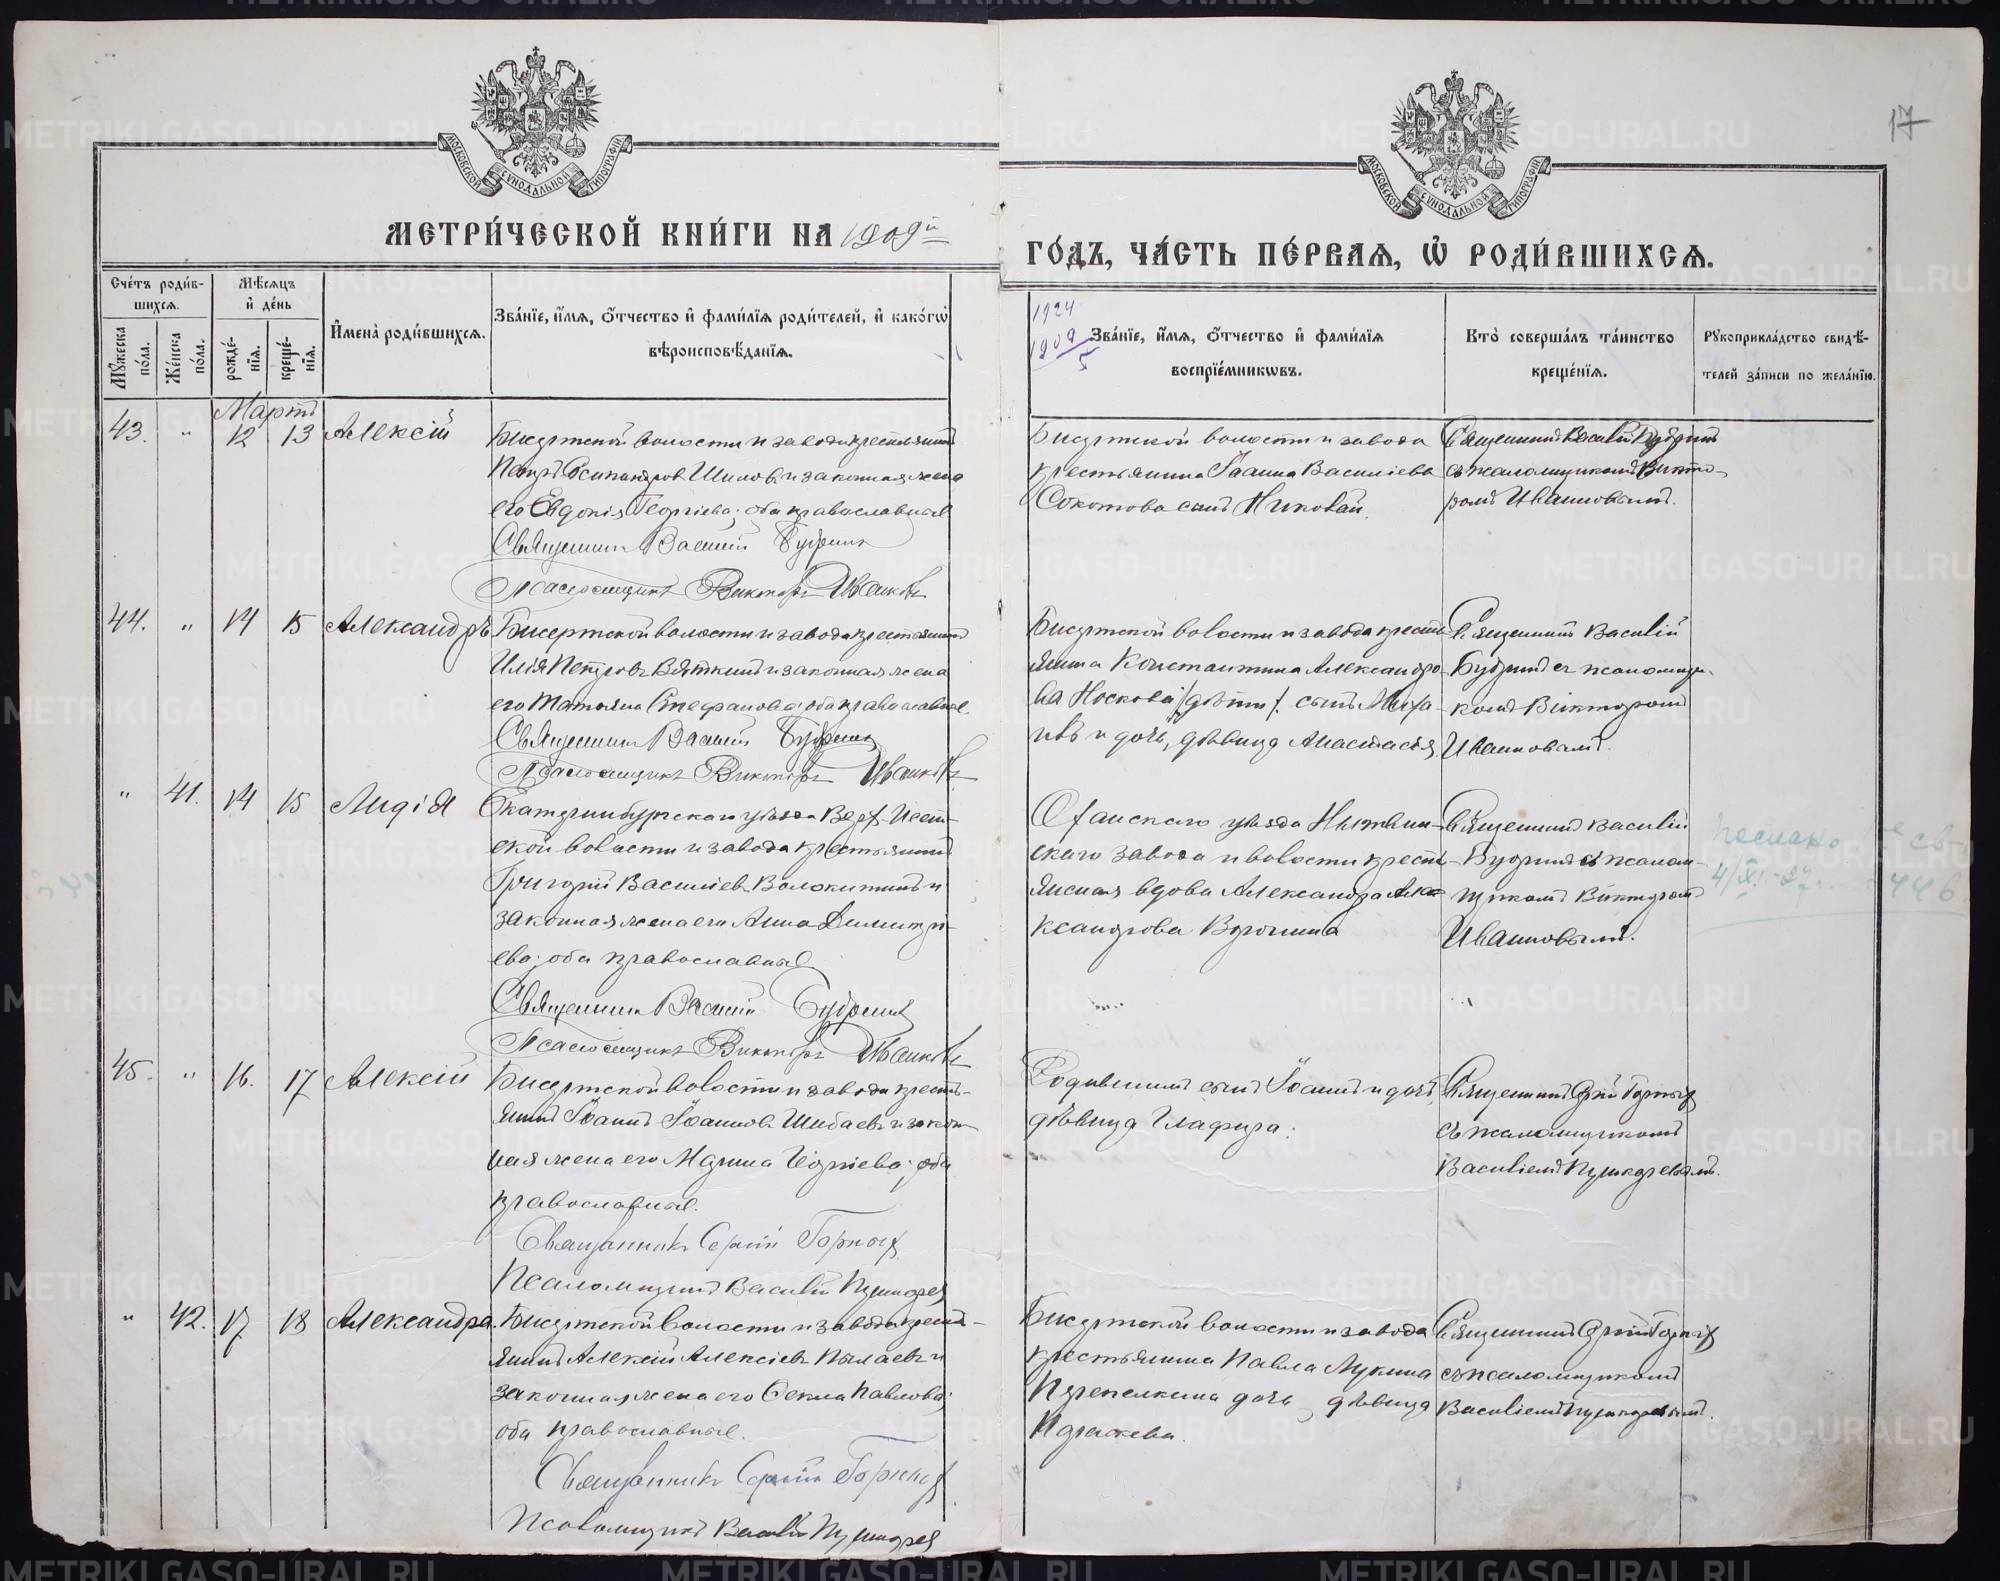 МОСКОВСКОЙ СѴНОДАЛЬНОЙ ТИПОГРАФІИ
МОСКОВСКОЙ СѴНОДАЛЬНОЙ ТИПОГРАФІИ
17
МЕТРИ́ЧЕСКОЙ КНИ́ГИ НА 1909й
ГО́ДЪ, ЧА́СТЬ ПЕ́РВАѦ, Ѿ РОДИ́ВШИХСѦ.
Сче́тъ роди́в-
шихсѧ.
Мѣ́сѧцъ
и҆ де́нь
Мꙋ́жеска по́ла.
Же́нска по́ла.
рожде́-
нїѧ.
креще́-
нїѧ.
И҆мена̀ роди́вшихсѧ.
Зва́нїе, и҆́мѧ, ѻ҆́тчество и҆ фами́лїѧ роди́телей, и҆ како́гѡ
вѣроисповѣ́данїѧ.
1924
1909
5
Зва́нїе, и҆́мѧ, ѻ҆́тчество и҆ фами́лїѧ
воспрїе́мникѡвъ.
Кто̀ соверша́лъ та́инство
креще́нїѧ.
Рꙋкоприкла́дство свидѣ́-
телей за́писи по жела́нїю.
Мартъ
43. " 12 13 Алексій
Бисертской волости и завода крестьянинъ
Петръ Шиловъ и законная жена
его Евдокія Георгіева; оба православные
Священникъ Василій Бубринъ
Псаломщикъ Викторъ Ивановъ
Бисертской волости и завода
крестьянина Іоанна Василіева
Сокотова сынъ Николай.
Священникъ Василій Бубринъ
съ псаломщикомъ Викто-
ромъ Ивановымъ.
44. " 14 15 Александръ
Бисертской волости и завода крестьянинъ
Илія Петровъ Вяткинъ и законная жена
его Татьяна Стефанова; оба православные.
Священникъ Василій Бубринъ
Псаломщикъ Викторъ Ивановъ
Бисертской волости и завода кресть-
янина Константина Александро-
ва Носкова /дѣти/. сынъ Миха-
илъ и дочь, дѣвица Анастасія
Священникъ Василій
Бубринъ съ псаломщи-
комъ Викторомъ
Ивановымъ.
" 41. 14 15 Лидія
Екатеринбургскаго уѣзда Верх-Исет-
ской волости и завода крестьянинъ
Григорій Василіевъ Волокитинъ и
законная жена его Анна Димитрі-
ева; оба православные
Священникъ Василій Бубринъ
Псаломщикъ Викторъ Ивановъ
Оханскаго уѣзда Нытвин-
скаго завода и волости кресть-
янская вдова Александра Але-
ксандрова Воронина
Священникъ Василій
Бубринъ съ псалом-
щикомъ Викторомъ
Ивановымъ.
45. " 16. 17 Алексій
Бисертской волости и завода кресть-
янинъ Іоаннъ Іоанновъ Шибаевъ и закон-
ная жена его Марина Георгіева; оба
православные.
Священникъ Сергій Горныхъ
Псаломщикъ Василій Пушкарев
Родившихъ сынъ Іоаннъ и дочь,
дѣвица Глафира.
Священникъ Сергій Горныхъ
съ псаломщикомъ
Василіемъ Пушкаревымъ.
" 42. 17 18 Александра.
Бисертской волости и завода кресть-
янинъ Алексій Алексіевъ Пылаевъ и
законная жена его Фекла Павлова;
оба православные.
Священникъ Сергій Горныхъ
Псаломщикъ Василій Пушкарев
Бисертской волости и завода
крестьянина Павла Лукина
Перепелкина дочь, дѣвица
Священникъ Сергій Горныхъ
съ псаломщикомъ
Василіемъ Пушкаревымъ.
METRIKI.GASO-URAL.RU